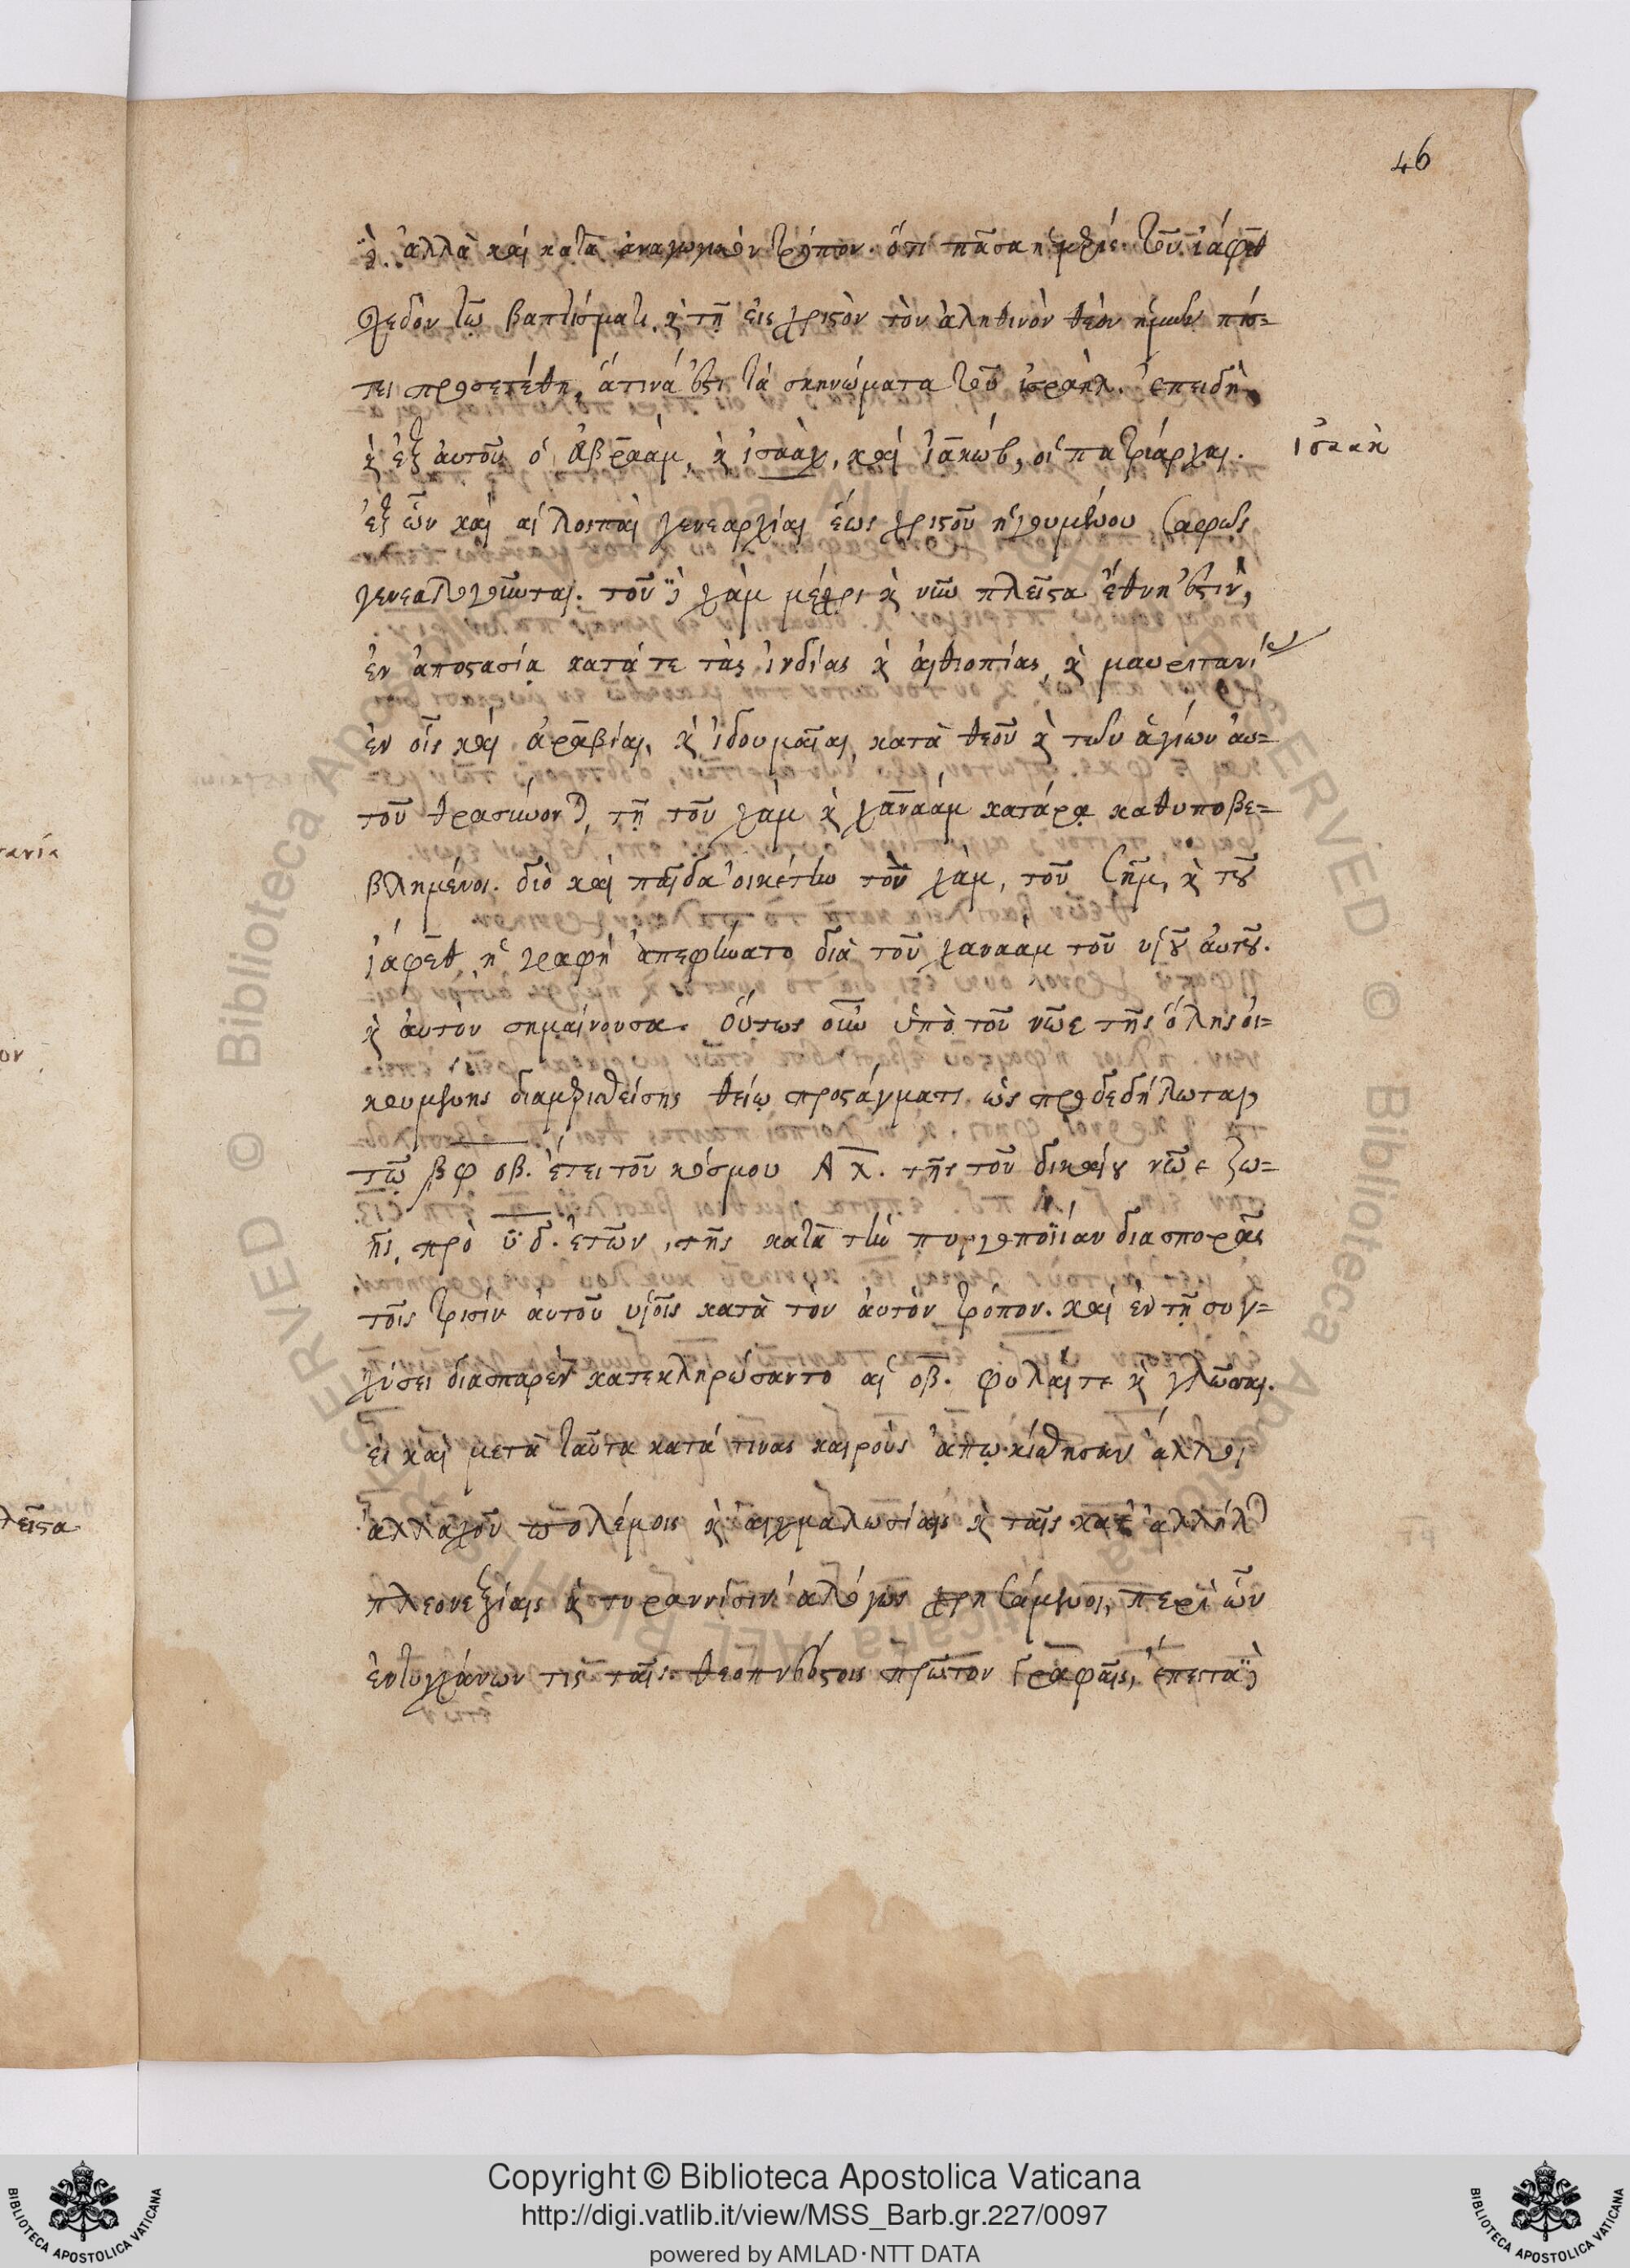 46
δὲ. ἀλλὰ καὶ κατὰ ἀναγωγικὸν τρόπον. ὅτι πᾶσα ἡ μερὶς τοῦ ἰάφεθ
σχεδὸν τῷ βαπτίσματι, καὶ τῇ εἰς χριστὸν τὸν ἀληθινὸν θεὸν ἡμῶν πίσ=
τει προσετέθη, ἅτινά ἐστι τὰ σκηνώματα τοῦ ἰσραήλ. ἐπειδὴ
καὶ ἐξ αὐτοῦ ὁ ἀβραὰμ, καὶ ἰσαὰκ, καὶ ἰακώβ, οἱ πατριάρχαι.
ἰσαὰκ
ἐξ ὧν καὶ αἱ λοιπαὶ γενεαρχίαι ἕως χριστοῦ ἡγουμένου σαφῶς
γενεαλογοῦνται. τοῦ δὲ χὰμ μέχρι καὶ νῦν πλεῖστα ἔθνη ἐστὶν,
ἐν ἀποστασίᾳ κατά τε τὰς ἰνδίας καὶ αἰθιοπίας καὶ μαυριτανί
ἐν οἷς καὶ ἀραβίαι, καὶ ἰδουμαῖαι κατὰ θεοῦ καὶ τῶν ἁγίων αὐ=
τοῦ θρασύνονται, τῇ τοῦ χὰμ καὶ χαναὰμ κατάρᾳ καθυποβε=
βλημένοι. διὸ καὶ παῖδα οἰκέτην τοῦ χὰμ, τοῦ σὴμ, καὶ τοῦ
ἰάφεθ ἡ γραφὴ ἀπεφήνατο διὰ τοῦ χαναὰμ τοῦ υἱοῦ αὐτοῦ.
καὶ αὐτὸν σημαίνουσα. Οὕτως οὖν ὑπὸ τοῦ νῶε τῆς ὅλης οἰ=
κουμένης διαμερισθείσης θείῳ προστάγματι ὡς προδεδήλωται
τῷ ͵βφ οβ. ἔτει τοῦ κόσμου ΑΧ. τῆς τοῦ δικαίου νῶε ζω=
ῆς, πρὸ υδ. ἐτῶν, τῆς κατὰ τὴν πυργοποιΐαν διασπορᾶς
τοῖς τρισὶν αὐτοῦ υἱοῖς κατὰ τὸν αὐτὸν τρόπον. καὶ ἐν τῇ συγ=
χύσει διασπαρὲν κατεκληρώσαντο αἱ οβ. φυλαί τε καὶ γλῶσσαι.
εἰ καὶ μετὰ ταῦτα κατά τινας καιροὺς ἀπῳκίσθησαν ἄλλοι
ἀλλαχοῦ πολέμοις καὶ αἰχμαλωσίαις καὶ ταῖς κατ' ἀλλήλων
πλεονεξίαις καὶ τυραννίσιν ἀλόγως χρησάμενοι, περὶ ὧν
ἐντυγχάνων τις ταῖς θεοπνεύστοις πρῶτον γραφαῖς, ἔπειτα δὲ
λεῖστα
Copyright © Biblioteca Apostolica Vaticana
http://digi.vatlib.it/view/MSS_Barb.gr.227/0097
powered by AMLAD·NTT DATA
BIBLIOTECA APOSTOLICA VATICANA
BIBLIOTECA APOSTOLICA VATICANA